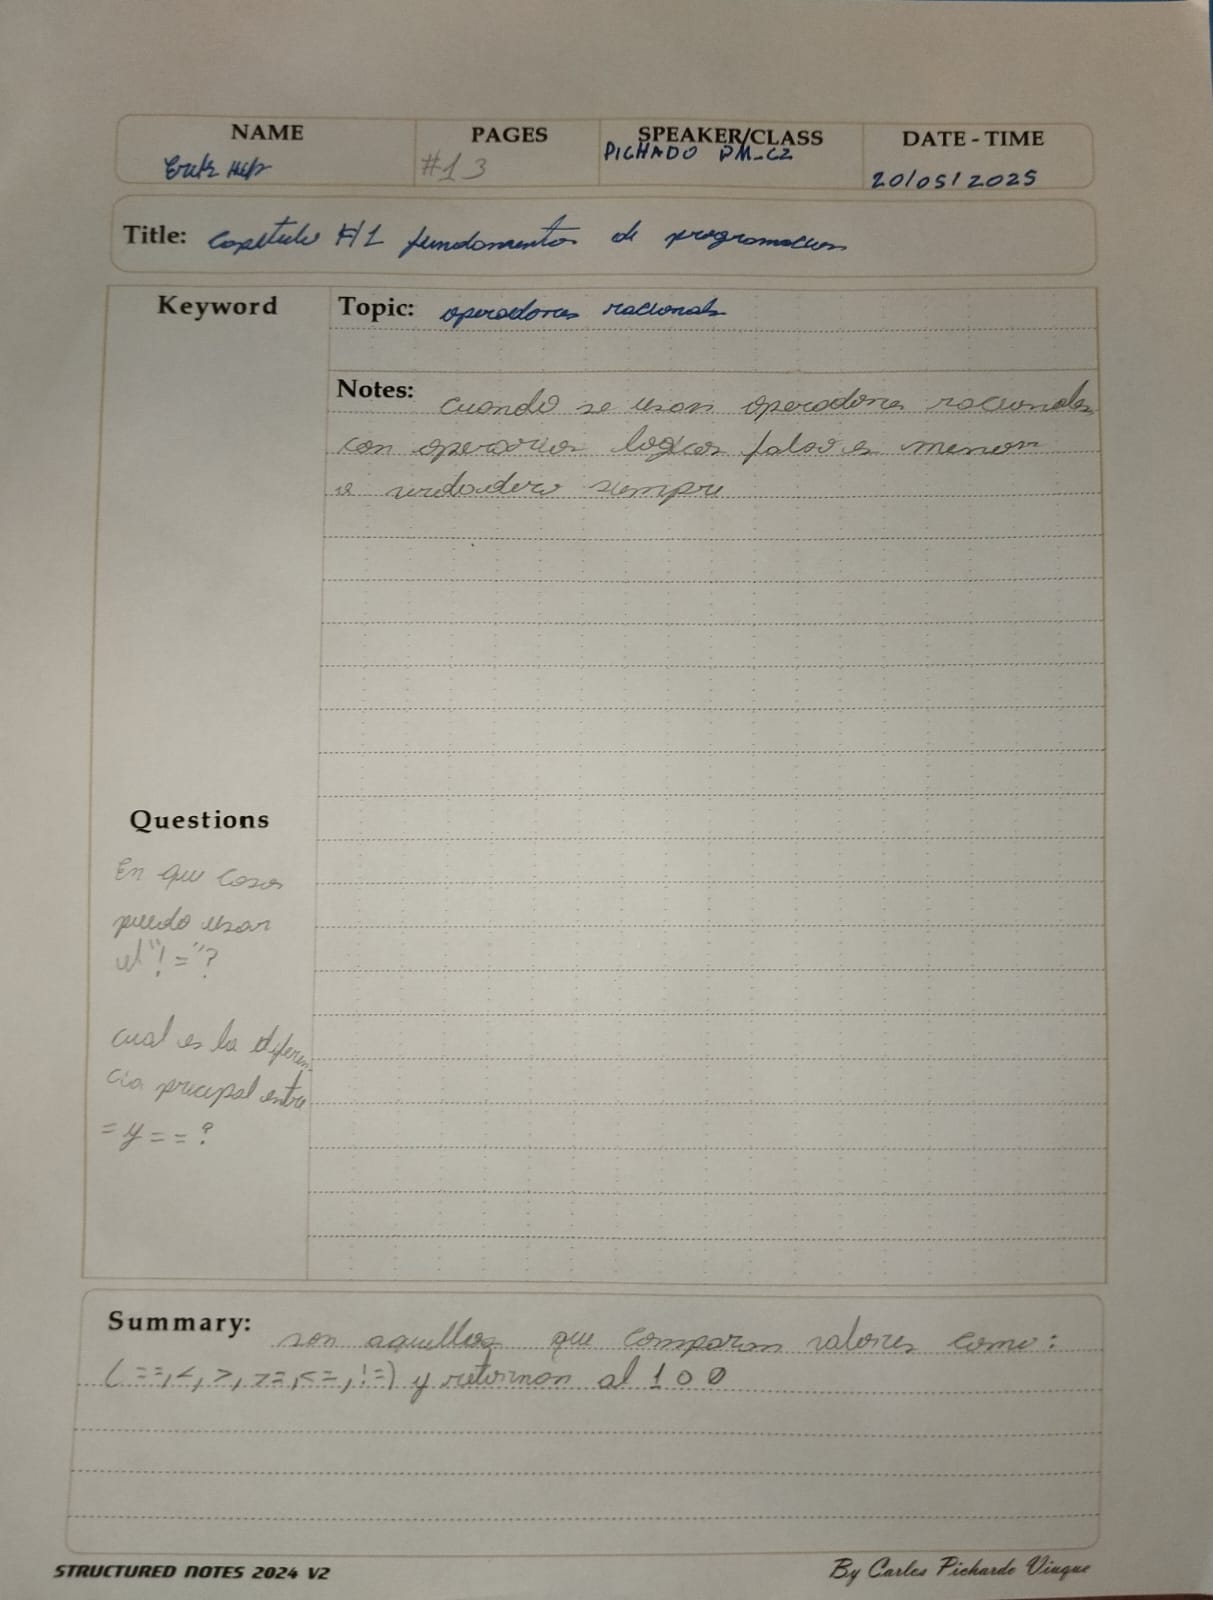 NAME PAGES SPEAKER/CLASS DATE - TIME
Erik #13 PICHADO PM-C2 20/05/2025
Title: Capitulo #1 fundamentos de programacion
Keyword
Topic: operadores racionals
Notes: cuando se usan operadores racionales
con operarios logicos falso es menor
verdadero siempre
Questions
En que casos
puedo usar
el "!="?
cual es la diferen
cia pricipal entre
= y == ?
Summary: son aquellos que comparan valores como:
(==,<,>,>=,<=,!=) y retornan al 1 o 0
STRUCTURED NOTES 2024 V2
By Carlos Pichardo Viuque